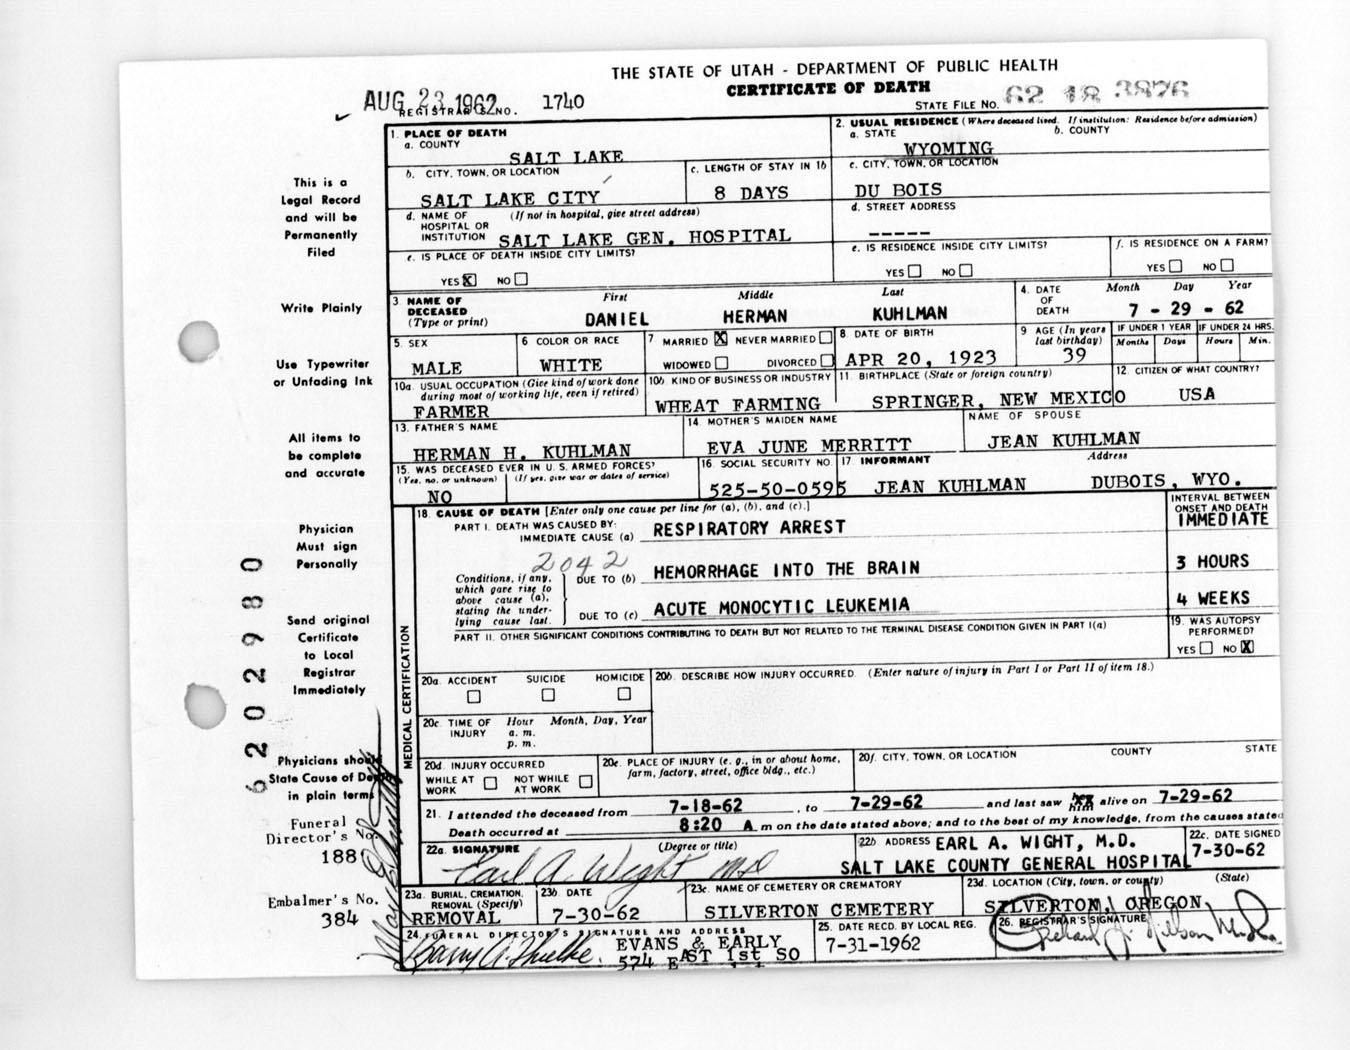 THE STATE OF UTAH - DEPARTMENT OF PUBLIC HEALTH
CERTIFICATE OF DEATH
AUG 23 1962
REGISTRAR'S NO. 1740
STATE FILE NO. 62 18 3876
This is a
Legal Record
and will be
Permanently
Filed
Write Plainly
Use Typewriter
or Unfading Ink
All items to
be complete
and accurate
Physician
Must sign
Personally
Send original
Certificate
to Local
Registrar
Immediately
Physicians should
State Cause of Death
in plain terms
Funeral
Director's No.
188
Embalmer's No.
384
6202980
1. PLACE OF DEATH
a. COUNTY
SALT LAKE
2. USUAL RESIDENCE (Where deceased lived. If institution: Residence before admission)
a. STATE b. COUNTY
WYOMING
b. CITY, TOWN, OR LOCATION
SALT LAKE CITY
c. LENGTH OF STAY IN 1b
8 DAYS
c. CITY, TOWN, OR LOCATION
DU BOIS
d. NAME OF (If not in hospital, give street address)
HOSPITAL OR
INSTITUTION SALT LAKE GEN. HOSPITAL
d. STREET ADDRESS
-----
e. IS PLACE OF DEATH INSIDE CITY LIMITS?
YES X NO
e. IS RESIDENCE INSIDE CITY LIMITS?
YES NO
f. IS RESIDENCE ON A FARM?
YES NO
3. NAME OF First Middle Last
DECEASED
(Type or print) DANIEL HERMAN KUHLMAN
4. DATE Month Day Year
OF
DEATH 7 - 29 - 62
5. SEX
MALE
6 COLOR OR RACE
WHITE
7 MARRIED X NEVER MARRIED
WIDOWED DIVORCED
8. DATE OF BIRTH
APR 20, 1923
9 AGE (In years
last birthday)
39
IF UNDER 1 YEAR IF UNDER 24 HRS.
Months Days Hours Min.
10a. USUAL OCCUPATION (Give kind of work done
during most of working life, even if retired)
FARMER
10b. KIND OF BUSINESS OR INDUSTRY
WHEAT FARMING
11. BIRTHPLACE (State or foreign country)
SPRINGER, NEW MEXICO
12. CITIZEN OF WHAT COUNTRY?
USA
13. FATHER'S NAME
HERMAN H. KUHLMAN
14. MOTHER'S MAIDEN NAME
EVA JUNE MERRITT
NAME OF SPOUSE
JEAN KUHLMAN
15. WAS DECEASED EVER IN U. S. ARMED FORCES?
(Yes, no, or unknown) (If yes, give war or dates of service)
NO
16. SOCIAL SECURITY NO.
525-50-0595
17. INFORMANT Address
JEAN KUHLMAN DUBOIS, WYO.
MEDICAL CERTIFICATION
18. CAUSE OF DEATH [Enter only one cause per line for (a), (b), and (c).]
INTERVAL BETWEEN
ONSET AND DEATH
PART I. DEATH WAS CAUSED BY:
IMMEDIATE CAUSE (a) RESPIRATORY ARREST IMMEDIATE
2042
Conditions, if any,
which gave rise to
above cause (a),
stating the under-
lying cause last.
DUE TO (b) HEMORRHAGE INTO THE BRAIN 3 HOURS
DUE TO (c) ACUTE MONOCYTIC LEUKEMIA 4 WEEKS
PART II. OTHER SIGNIFICANT CONDITIONS CONTRIBUTING TO DEATH BUT NOT RELATED TO THE TERMINAL DISEASE CONDITION GIVEN IN PART I(a)
19. WAS AUTOPSY
PERFORMED?
YES NO X
20a. ACCIDENT SUICIDE HOMICIDE
20b. DESCRIBE HOW INJURY OCCURRED. (Enter nature of injury in Part I or Part II of item 18.)
20c. TIME OF Hour Month, Day, Year
INJURY a. m.
p. m.
20d. INJURY OCCURRED
WHILE AT WORK NOT WHILE AT WORK
20e. PLACE OF INJURY (e. g., in or about home,
farm, factory, street, office bldg., etc.)
20f. CITY, TOWN, OR LOCATION COUNTY STATE
21. I attended the deceased from 7-18-62, to 7-29-62 and last saw him alive on 7-29-62
Death occurred at 8:20 A m on the date stated above; and to the best of my knowledge, from the causes stated
22a. SIGNATURE (Degree or title)
Earl A. Wight MD
22b. ADDRESS EARL A. WIGHT, M.D.
SALT LAKE COUNTY GENERAL HOSPITAL
22c. DATE SIGNED
7-30-62
23a. BURIAL, CREMATION,
REMOVAL (Specify)
REMOVAL
23b. DATE
7-30-62
23c. NAME OF CEMETERY OR CREMATORY
SILVERTON CEMETERY
23d. LOCATION (City, town, or county) (State)
SILVERTON, OREGON
24. FUNERAL DIRECTOR'S SIGNATURE AND ADDRESS
EVANS & EARLY
574 EAST 1st SO
25. DATE RECD. BY LOCAL REG.
7-31-1962
26. REGISTRAR'S SIGNATURE